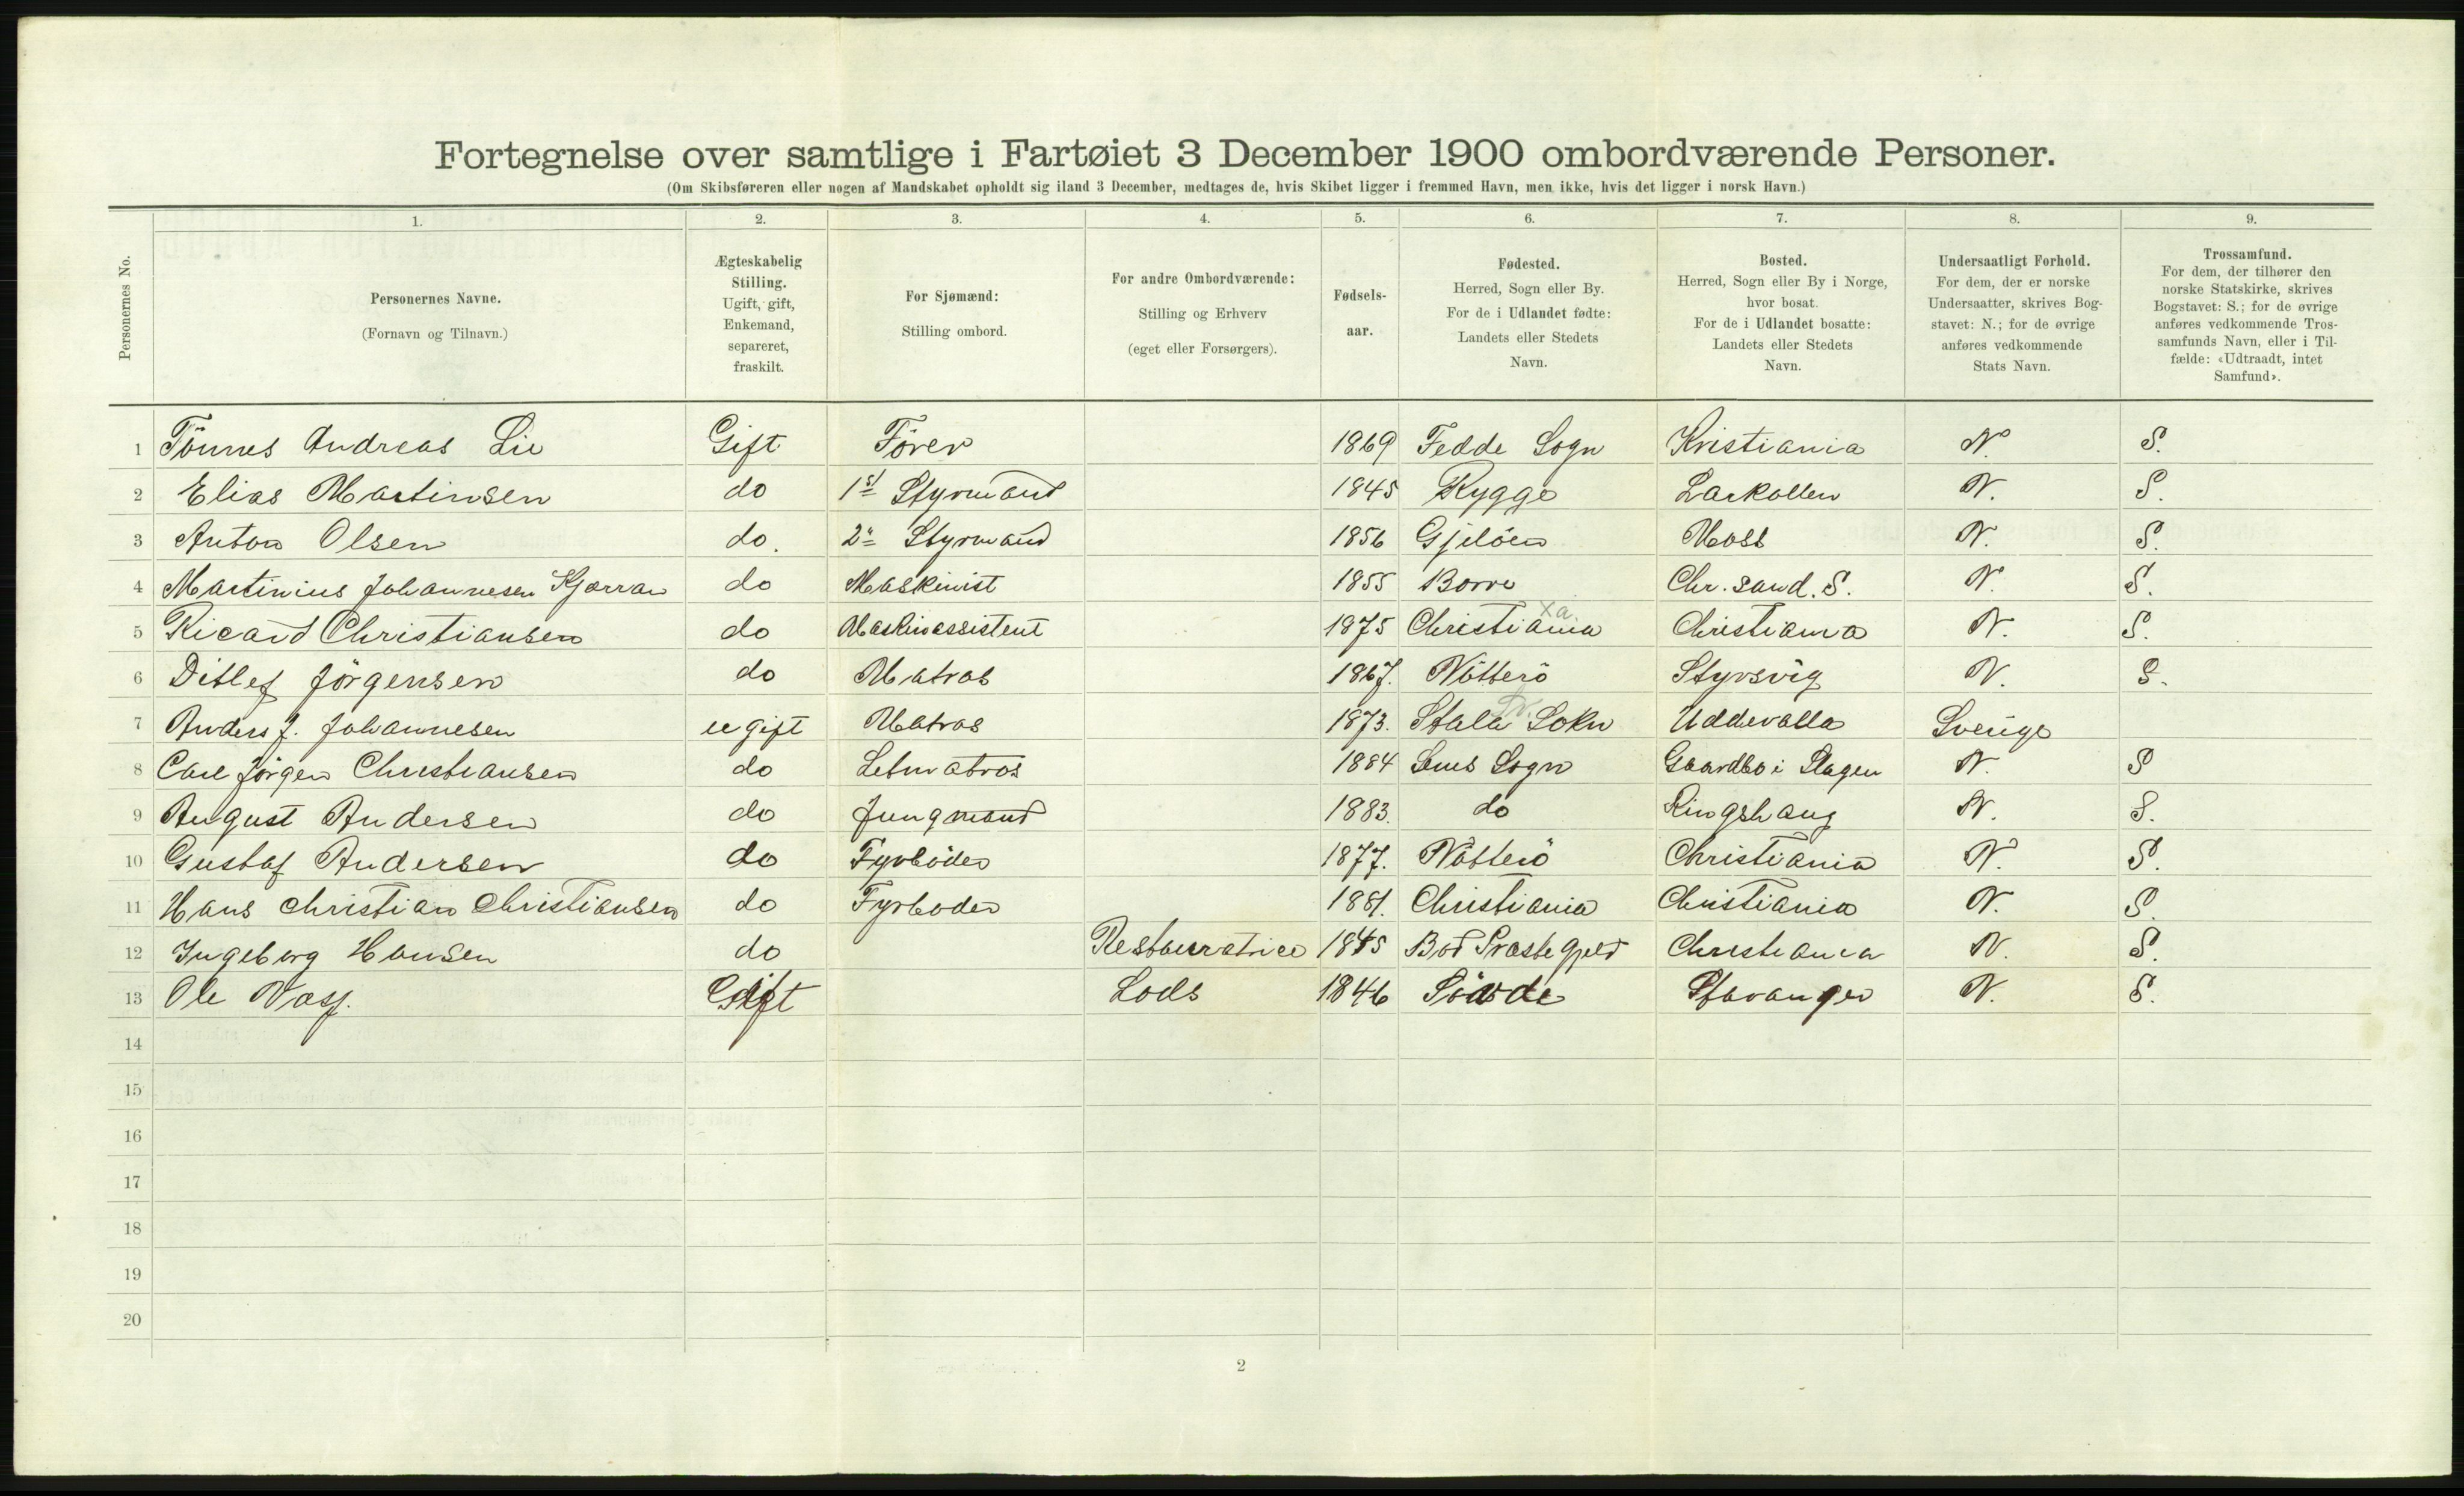 Fortegnelse over samtlige i Fartøiet 3 December 1900 ombordværende Personer.
(Om Skibsføreren eller nogen af Mandskabet opholdt sig iland 3 December, medtages de, hvis Skibet ligger i fremmed Havn, men ikke, hvis det ligger i norsk Havn.)
Personernes No.
1. 2. 3. 4. 5. 6. 7. 8. 9.
Personernes Navne.
(Fornavn og Tilnavn.)
Ægteskabelig
Stilling.
Ugift, gift,
Enkemand,
separeret,
fraskilt.
For Sjømænd:
Stilling ombord.
For andre Ombordværende:
Stilling og Erhverv
(eget eller Forsørgers).
Fødsels-
aar.
Fødested.
Herred, Sogn eller By.
For de i Udlandet fødte:
Landets eller Stedets
Navn.
Bosted.
Herred, Sogn eller By i Norge,
hvor bosat.
For de i Udlandet bosatte:
Landets eller Stedets
Navn.
Undersaatligt Forhold.
For dem, der er norske
Undersaatter, skrives Bog-
stavet: N.; for de øvrige
anføres vedkommende
Stats Navn.
Trossamfund.
For dem, der tilhører den
norske Statskirke, skrives
Bogstavet: S.; for de øvrige
anføres vedkommende Tros-
samfunds Navn, eller i Til-
fælde: «Udtraadt, intet
Samfund».
1 Tönnes Andreas Lie Gift Förer 1869 Fedde Sogn Kristiania N. S.
2 Elias Martinsen do 1st Styrmand 1845 Rygge Larkollen N. S.
3 Anton Olsen do. 2n Styrmand 1856 Gjelöen Moss N. S.
4 Martinius Johannesen Kjærran do Maskinist 1855 Borre Chr. sand. S. N. S.
5 Ricard Christiansen do Maskinassistent 1875 Christiania Xa Christiania N. S.
6 Ditlef Jörgensen do Matros 1867. Nötterö Styrsvig N. S.
7 Anders J. Johannesen ugift Matros 1873. Stala Sokn Uddevalla Sverige
8 Carl Jörgen Christiansen do Letmatros 1884 Sems Sogn Gaardbo i Slagen N. S
9 August Andersen do Jungmand 1883. do Ringshaug N. S.
10 Gustaf Andersen do Fyrböder 1877. Nötterö Christiania N. S.
11 Hans Christian Christiansen do Fyrboder 1881. Christiania Christiania N. S.
12 Ingeborg Hansen do Restauratrice 1845 Bod Præstegjeld Christiania N. S.
13 Ole Gift Lods 1846 Stavanger N. S.
14
15
16
17
18
19
20
2